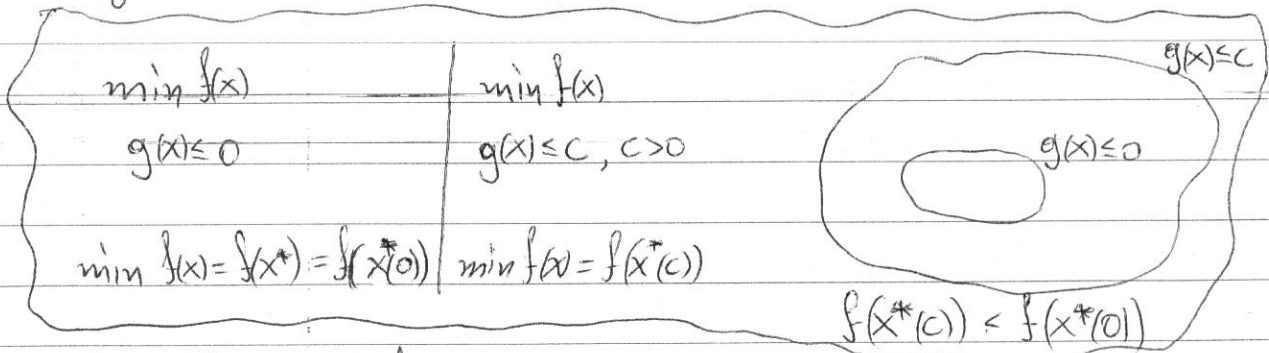 min f(x)
g(x)≤0
min f(x) = f(x*) = f(x*(0))
min f(x)
g(x)≤C, C>0
min f(x) = f(x*(c))
g(x)≤C
g(x)≤0
f(x*(c)) < f(x*(0))